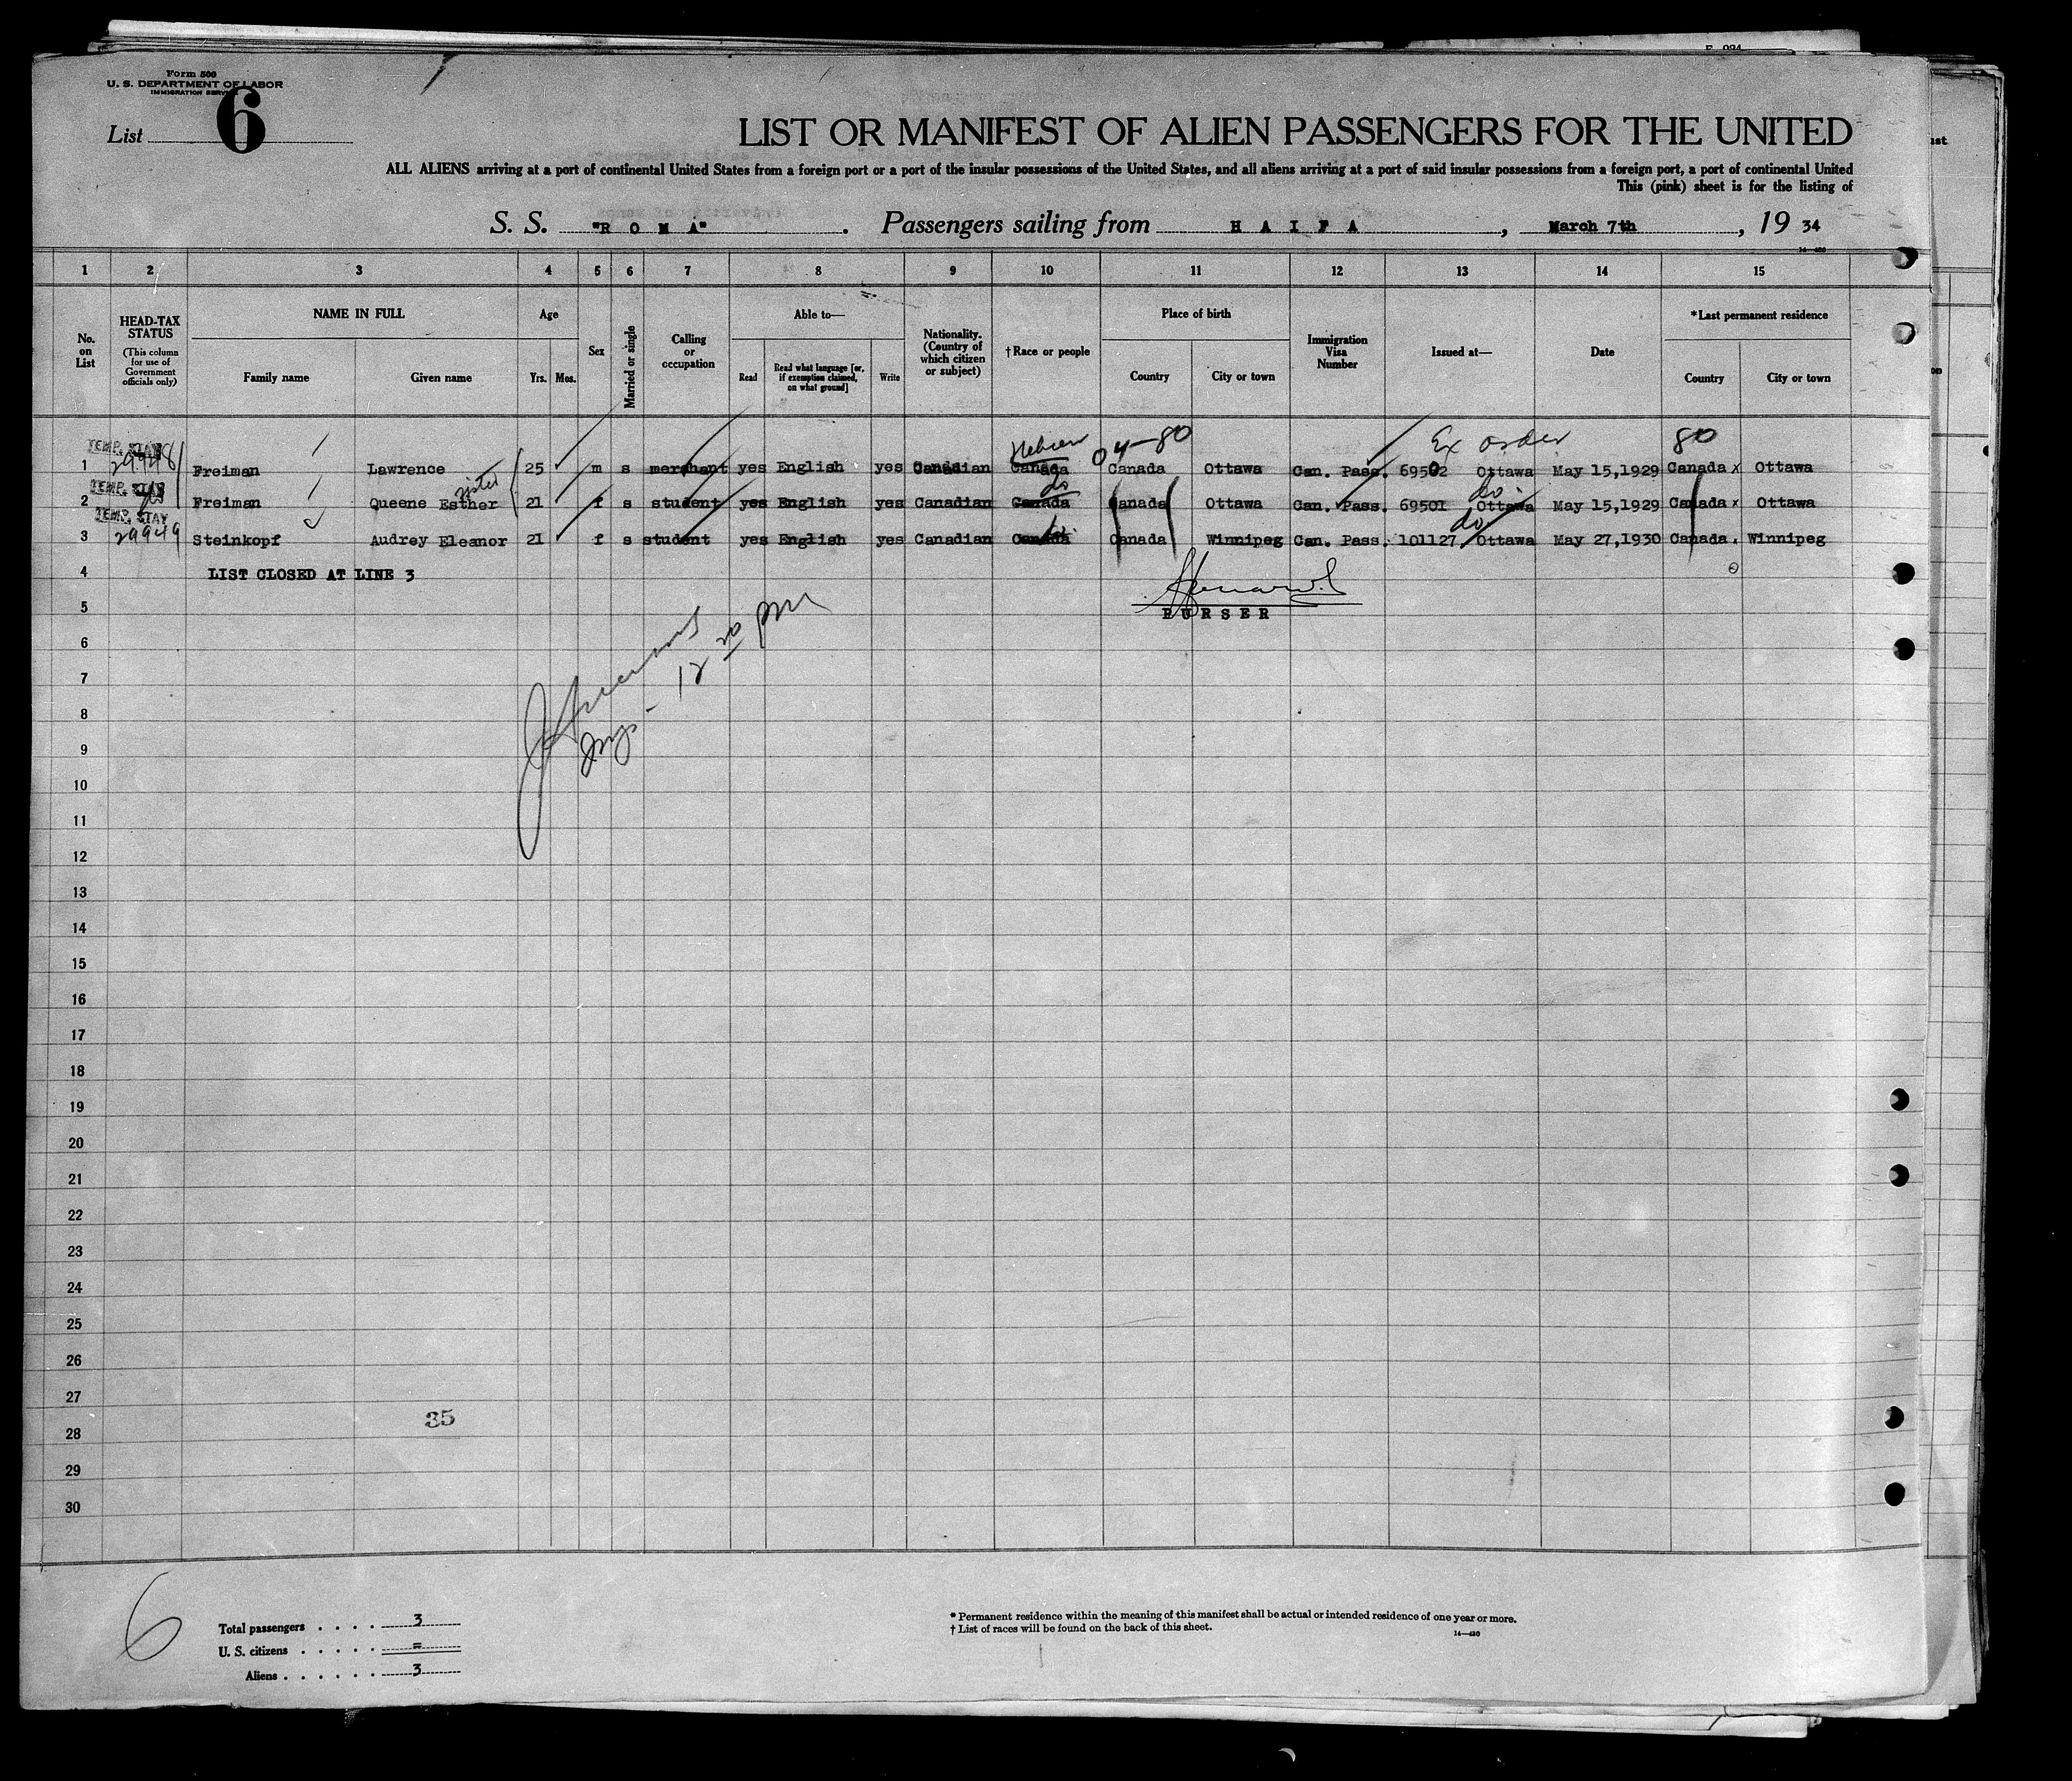 Form 500
U. S. DEPARTMENT OF LABOR
IMMIGRATION SERVICE
List 6
LIST OR MANIFEST OF ALIEN PASSENGERS FOR THE UNITED
ALL ALIENS arriving at a port of continental United States from a foreign port or a port of the insular possessions of the United States, and all aliens arriving at a port of said insular possessions from a foreign port, a port of continental United
This (pink) sheet is for the listing of
S. S. "R O M A". Passengers sailing from H A I F A, March 7th, 19 34
1 2 3 4 5 6 7 8 9 10 11 12 13 14 15
No. on List
HEAD-TAX STATUS (This column for use of Government officials only)
NAME IN FULL
Family name Given name
Age
Yrs. Mos.
Sex
Married or single
Calling or occupation
Able to—
Read Read what language [or, if exemption claimed, on what ground] Write
Nationality. (Country of which citizen or subject)
†Race or people
Place of birth
Country City or town
Immigration Visa Number
Issued at—
Date
*Last permanent residence
Country City or town
Hebrew 04-80 Ex order 80
TEMP. STAY
29948
1 Freiman Lawrence 25 m s merchant yes English yes Canadian Canada Canada Ottawa Can. Pass. 69502 Ottawa May 15,1929 Canada x Ottawa
sister do do
TEMP. STAY
2 Freiman Queene Esther 21 f s student yes English yes Canadian Canada Canada Ottawa Can. Pass. 69501 Ottawa May 15,1929 Canada x Ottawa
TEMP. STAY do
29949
3 Steinkopf Audrey Eleanor 21 f s student yes English yes Canadian Canada Canada Winnipeg Can. Pass. 101127 Ottawa May 27,1930 Canada Winnipeg
4 LIST CLOSED AT LINE 3
5 PURSER
6
12 20 pm
7
8
9
10
11
12
13
14
15
16
17
18
19
20
21
22
23
24
25
26
27
35
28
29
30
6
Total passengers . . . . 3
U. S. citizens . . . . . =
Aliens . . . . . . 3
* Permanent residence within the meaning of this manifest shall be actual or intended residence of one year or more.
† List of races will be found on the back of this sheet.
14—430